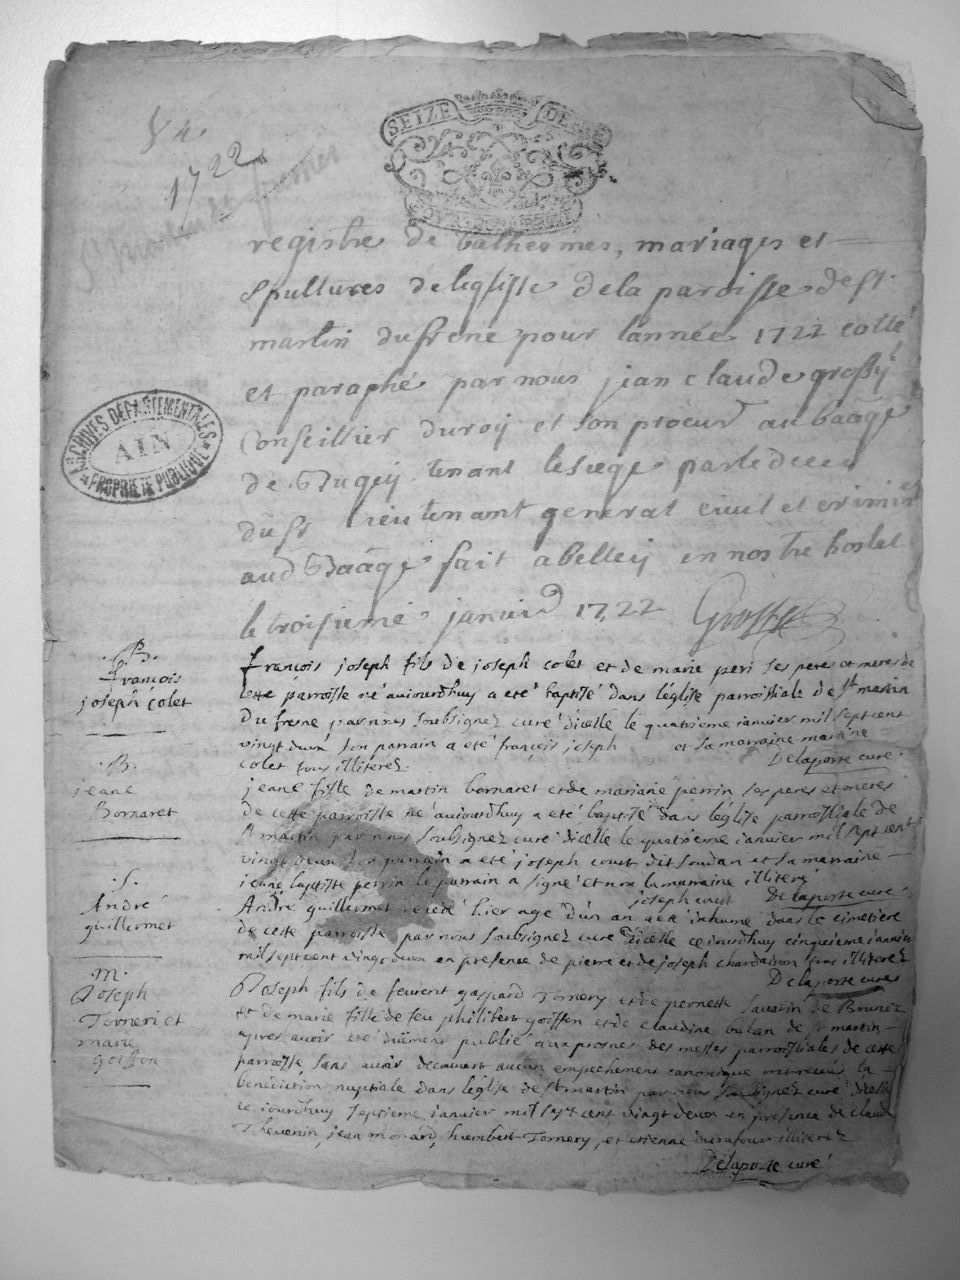 1722
SEIZE DE
St Martin du fresne
registre de bathesmes, mariages et
spultures de leglisse de la paroisse de st
martin du frene pour lannée 1722 cotté
et paraphé par nous jean claude grossy
Conseillier du roy et son procur au baage
de Bugey tenant le siege par le deces
du sr lieutenant general civil et crimi
aud Baage fait a belley en nostre hostel
le troisieme janvier 1722 Grossy
ARCHIVES DEPARTEMENTALES
AIN
PROPRIETE PUBLIQUE
B.
francois
joseph colet
francois joseph fils de joseph colet et de marie peri ses peres et meres de
cette parroisse né aujourdhuy a eté baptisé dans l'eglise parroissiale de st martin
du fresne par nous soubsignez curé d'icelle le quatrieme ianvier mil sept cent
vingt deux son parrain a eté françois joseph et sa marraine
colet tous illiterez. Delaporte curé
B.
jeane
Bornaret
jeane fille de martin bornaret et de mariane perrin ses peres et meres
de cette parroisse né aujourdhuy a eté baptisé dans l'eglise parroissiale de
st martin par nous soubsignez curé d'icelle le quatrieme ianvier mil sept cent
vingt deux son parrain a eté joseph court dit soudan et sa marraine
jeane baptiste perrin le parrain a signé et non la marraine illiteré
joseph court Delaporte curé
S.
André
guillermet
André guillermet decedé hier agé d'un an a eté inhumé dans le cimetiere
de cette parroisse par nous soubsignez curé d'icelle ce iourdhuy cinquieme ianvier
mil sept cent vingt deux en presence de pierre et de joseph chardaison tous illiterez
Delaporte curé
M.
Joseph
Torneri et
marie
goiffon
Joseph fils de feu gaspard Tornery et de pernette savarin de Brunez
et de marie fille de feu philibert goiffon et de claudine balan de st martin
apres avoir eté düement publié aux prosnes des messes parroissiales de cette
parroisse sans avoir decouvert aucun empechement canonique la
bénédiction nuptiale dans l'eglise de st martin par nous soubsignez curé d'icelle
ce iourdhuy septieme ianvier mil sept cent vingt deux en presence de claude
Thevenin, jean monard, humbert Tornery, et etienne illiterez
Delaporte curé